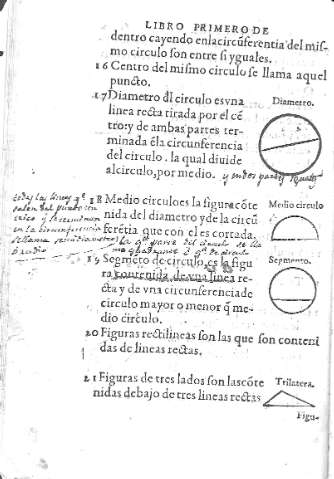 LIBRO PRIMERO DE
dentro cayendo enla circũferentia del mis-
mo circulo son entre si yguales.
16 Centro del mismo circulo se llama aquel
puncto.
17 Diametro dl circulo es vna
linea recta tirada por el cẽ
tro: y de ambas partes ter-
minada ẽla circunferencia
del circulo. la qual diuide
al circulo, por medio.
Diametro.
18 Medio circulo es la figura cõte
nida del diametro y de la circũ
ferẽtia que con el es cortada.
Medio circulo
la 4ª parte del circulo se lla
19 Segmẽto de circulo, es la figu
ra contenida de vna linea re-
cta y de vna circunferencia de
circulo mayor o menor q̃ me-
dio circulo.
Segmento.
20 Figuras rectilineas son las que son conteni
das de lineas rectas.
21 Figuras de tres lados son las cõte
nidas debajo de tres lineas rectas
Trilatera.
Figu-